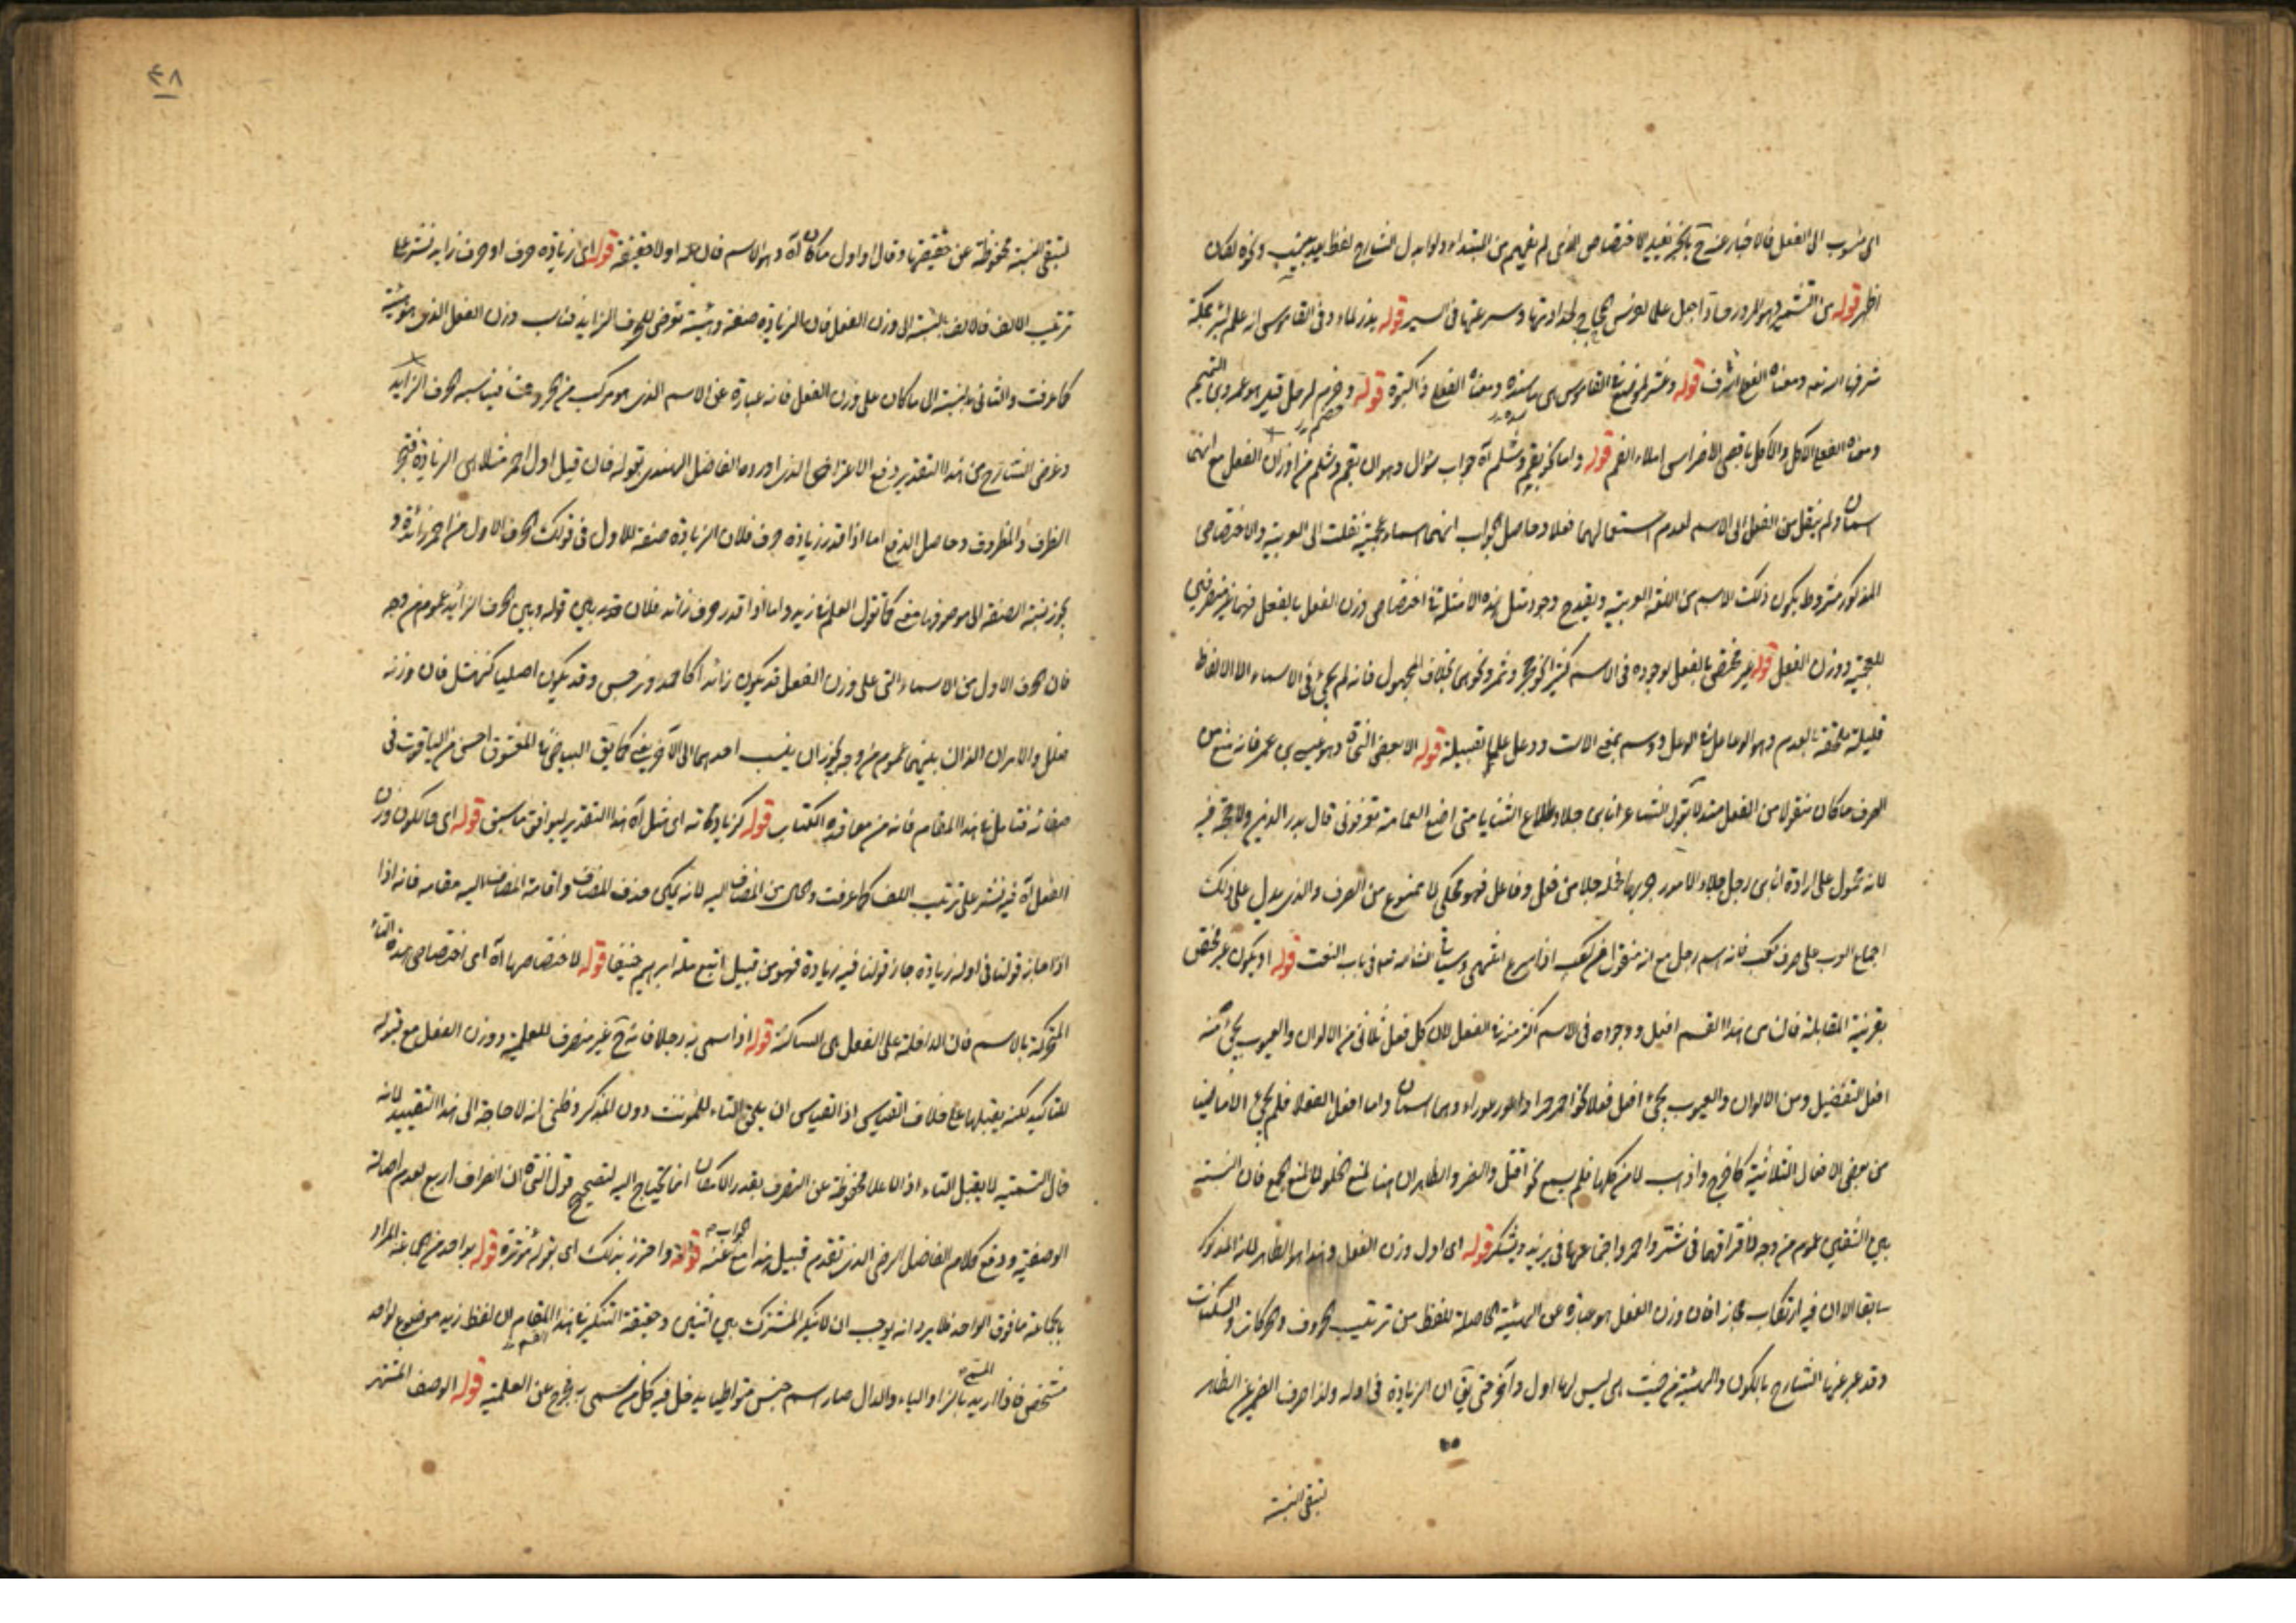 اى منسوب الى الفعل فالاخبار عنه ح بالجر يفيد الاختصاص الذى لم يفهم من المبتداء ولو ابدل الشارح لفظ بعد بجنيب ونحوه لكان
اظهر قوله من التشمير وهو المرور جادا جعل علما لفرس الحجاج لحدادتها وسرعتها فى السير قوله بذر لماء وفى القاموس انه علم لبئر بمكة
شرفها الله تعه ومعناه الفعل اسرف قوله وعثر لموضع فى القاموس هى ماسدة ومعناه الفعلى ذا كبوة قوله وخضم لرجل قيل هو عمرو بن التميم
ومعناه الفعلى الاكل والاكل باقصى الاضراس املاء الفم قوله واما نحو بقم وشلم آه جواب سؤال وهو ان بقم وشلم من اوزان الفعل مع انهما
اسمان ولم ينقل من الفعل الى الاسم لعدم استعمالهما فعلا وحاصل الجواب انهما اسماء عجمية نقلت الى العربية والاختصاص
المذكور مشروط بكون ذلك الاسم من اللغة العربية ويقدح وجود مثل هذه الامثلة فى اختصاص وزن الفعل بالفعل فهما غير منصرفين
للعجمة ووزن الفعل قوله غير مختص بالفعل لوجوده فى الاسم كثيرا نحو حجر وثمر ونحوهما بخلاف المجهول فانه لم يجئ فى الاسماء الا الالفاظ
قليلة ملحقة بالعدم وهو الوعل فى الوعل ووسم بمعنى الاست ودئل علما لقبيلة قوله الا بعض النحاة وهو عيسى بن عمر فانه منع من
الصرف ما كان منقولا من الفعل مستدلا بقول الشاعر انا بن جلا وطلاع الثنايا متى اضع العمامة تعرفونى قال بدر الدين ولا حجة فيه
لانه محمول على ارادة انا بن رجل جلا الامور وجربها فجملة جلا من فعل وفاعل فهو محكى لا ممنوع من الصرف والذى يدل على ذلك
اجماع العرب على صرف كعب فانه اسم رجل مع انه منقول من كعب اذا اسرع انتهى وسياتى انشاء الله تعه فى باب النعت قوله او يكون غير مختص
بقرينة المقابلة فان من هذا القسم افعل ووجوده فى الاسم اكثر منه فى الفعل لان كل فعل ثلاثى من الالوان والعيوب يجئ منه
افعل التفضيل ومن الالوان والعيوب يجئ افعل فعلا نحو احمر حمراء واعور عوراء وهما اسمان واما افعل الفعل فلم يجئ الا ماضيا
من بعض الافعال الثلاثية كاخرج واذهب لا من كلها فلم يسمع نحو اقتل وانصر والظاهر ان هنا لمنع الخلو لا لمنع الجمع فان النسبة
بين الشقين عموم من وجه لافتراقهما فى شتر واحمر واجتماعهما فى يزيد ويشكر قوله اى اول وزن الفعل وهذا هو الظاهر لانه المذكور
سابقا الا ان فيه ارتكاب مجاز فان وزن الفعل هو عبارة عن الهيئة الحاصلة للفظ من ترتيب الحروف والحركات والسكنات
وقد عبر عنها الشارح بالكون والهيئة من حيث هى ليس لها اول وآخر حتى يق ان الزيادة فى اوله ولذا صرف الضمير عن الظاهر
لتبقى النسبة
٤٨
لتبقى النسبة محفوظة عن حقيقتها وقال او اول ما كان آه وهو الاسم فان له اولا حقيقة قوله اى زيادة حرف او حرف زايد نشر على
ترتيب اللف فالاول بالنسبة الى وزن الفعل فان الزيادة صفة وهيئة تعرض للحروف الزايد فناسب وزن الفعل الذى هو هيئة
كما عرفت والثانى بالنسبة الى ما كان على وزن الفعل فانه عبارة عن الاسم الذى هو مركب من الحروف فيناسبه الحرف الزايد
وغرض الشارح من هذا التقدير دفع الاعتراض الذى اورده الفاضل الهندى بقوله فان قيل اول احمر مثلا هى الزيادة فتجد
الظرف والمظروف وحاصل الدفع اما اذا قدر زيادة حرف فلان الزيادة صفة للاول فى قولك الحرف الاول من احمر زائدة و
يجوز نسبة الصفة الى موصوفها بفى كما تقول العلم فى زيد واما اذا قدر حرف زائد فلان بين قوله وبين الحرف الزائد عموم من وجه
فان الحرف الاول من الاسماء التى على وزن الفعل قد يكون زائدا كاحمد ونرجس وقد يكون اصليا كنهشل فان وزنه
فعلل والامران اللذان بينهما عموم من وجه يجوز ان ينسب احدهما الى الآخر بفى كما يق البياض فى المعشوق احسن من الياقوت فى
صفائه فتامل فى هذا المقام فانه من معاقد الكتاب قوله كزيادته اى مثل آه هذا التقدير ليوافق ما سبق قوله اى فالكون وزن
الفعل آه فيه نشر على ترتيب اللف كما عرفت والحال من المضاف اليه لانه يمكن حذف المضاف واقامة المضاف اليه مقامه فانه اذا
اذا جاز قولنا فى اوله زيادة جاز قولنا فيه زيادة فهو من قبيل اتبع ملة ابرهيم حنيفا قوله لاختصاصها آه اى اختصاص هذه التاء
المتحركة بالاسم فان الداخلة على الفعل هى الساكنة قوله اذا سمى به رجلا فانه ح غير منصرف للعلمية ووزن الفعل مع قبوله
للتاكيد لكنه يقبلها على خلاف القياس اذ القياس ان يلحق التاء للمؤنث دون المذكر وظنى انه لا حاجة الى هذا التقييد لانه
قال التسمية لا يقبل التاء اذ الاعلام محفوظة عن التصرف بقدر الامكان انما يحتاج اليه لتصحيح قول النحاة ان انصراف اربع لعدم اصالة
الوصفية ودفع كلام الفاضل الرضى الذى تقدم قبيل هذا مع الجواب عنه قوله واحترز بذلك اى بقوله مؤثرة قوله بواحد من الجماعة المراد
بالجماعة ما فوق الواحد فلا يرد انه يوجب ان لا ينكر المشترك بين اثنين وحقيقة التنكير فى هذا المقام ان لفظ زيد موضوع لواحد
مشخص فاذا اريد المسمى بالزاء والياء والدال صار اسم جنس متواطيا يدخل فيه كل من سمى به فخرج عن العلمية قوله الوصف المشتهر